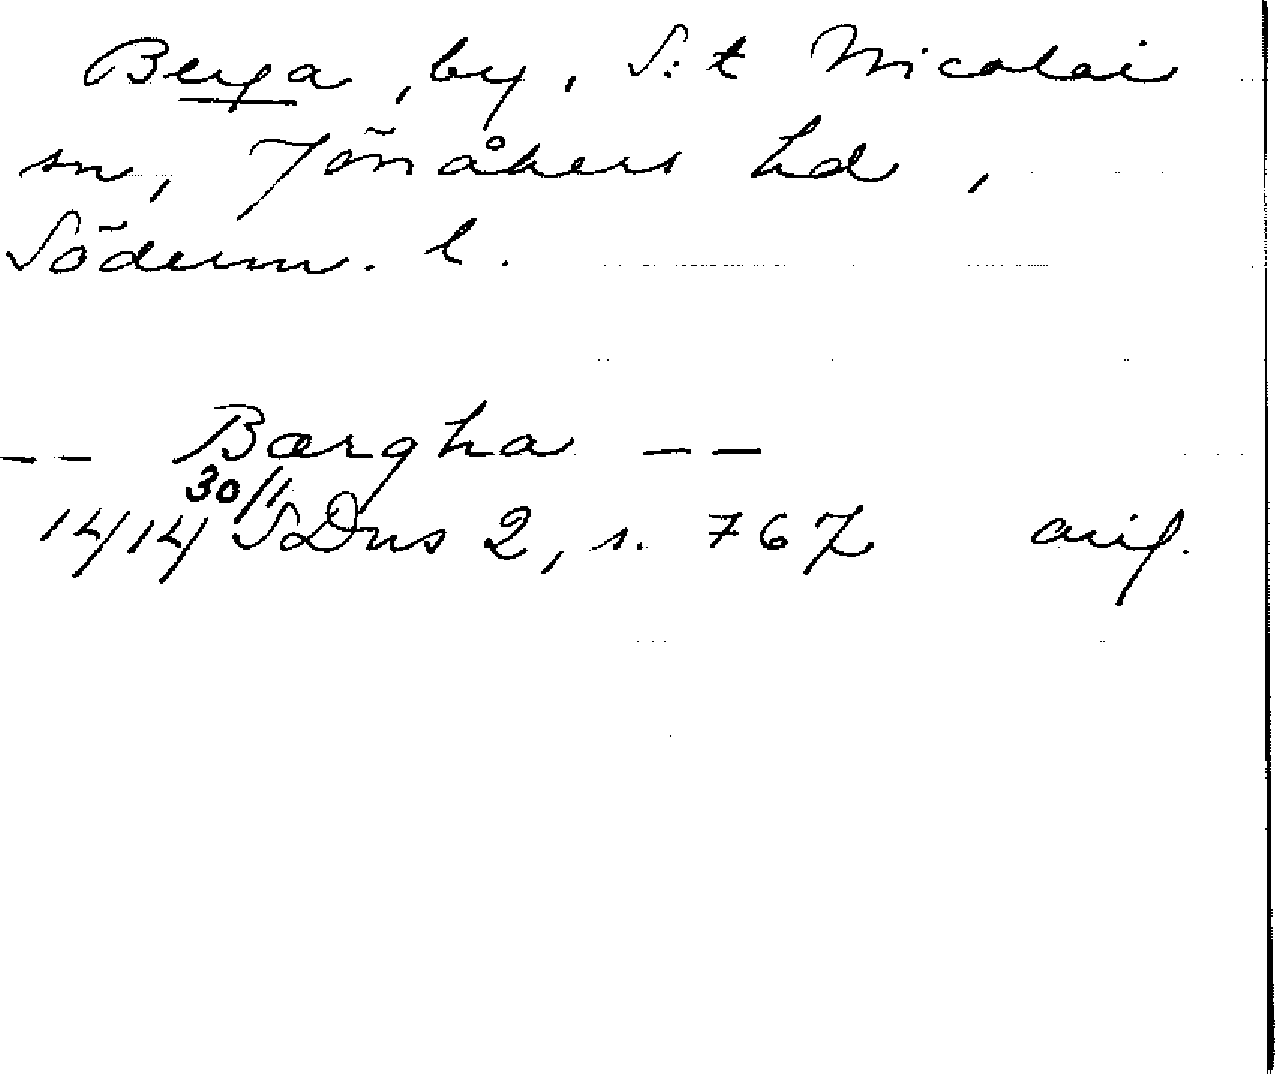 Berga, by, S:t Nicolai
sn, Jönåkers hd,
Söderm. l.
-- Bærgha --
30/1
1414 SDns 2, s. 767 avs.